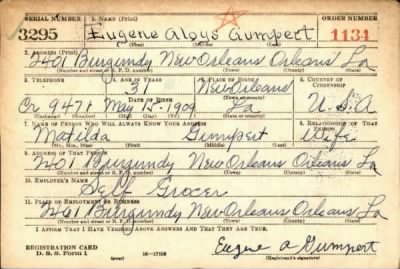 SERIAL NUMBER 1. NAME (Print) ORDER NUMBER
3295 Eugene Aloys Gumpert 1134
(First) (Middle) (Last)
2. ADDRESS (Print)
2401 Burgundy New Orleans Orleans La
(Number and street or R. F. D. number) (Town) (County) (State)
3. TELEPHONE 4. AGE IN YEARS 5. PLACE OF BIRTH 6. COUNTRY OF CITIZENSHIP
31 New Orleans
(Town or county)
DATE OF BIRTH
Cr 9471 May 15-1909 La U.S.A
(Exchange) (Number) (Mo.) (Day) (Yr.) (State or country)
7. NAME OF PERSON WHO WILL ALWAYS KNOW YOUR ADDRESS 8. RELATIONSHIP OF THAT PERSON
Matilda Gumpert Wife
(Mr., Mrs., Miss) (First) (Middle) (Last)
9. ADDRESS OF THAT PERSON
2401 Burgundy New Orleans Orleans La
(Number and street or R. F. D. number) (Town) (County) (State)
10. EMPLOYER'S NAME
Self Grocer
11. PLACE OF EMPLOYMENT OR BUSINESS
2401 Burgundy New Orleans Orleans La
(Number and street or R. F. D. number) (Town) (County) (State)
I AFFIRM THAT I HAVE VERIFIED ABOVE ANSWERS AND THAT THEY ARE TRUE.
Eugene A Gumpert
REGISTRATION CARD
D. S. S. Form 1 16-17105 (Registrant's signature)